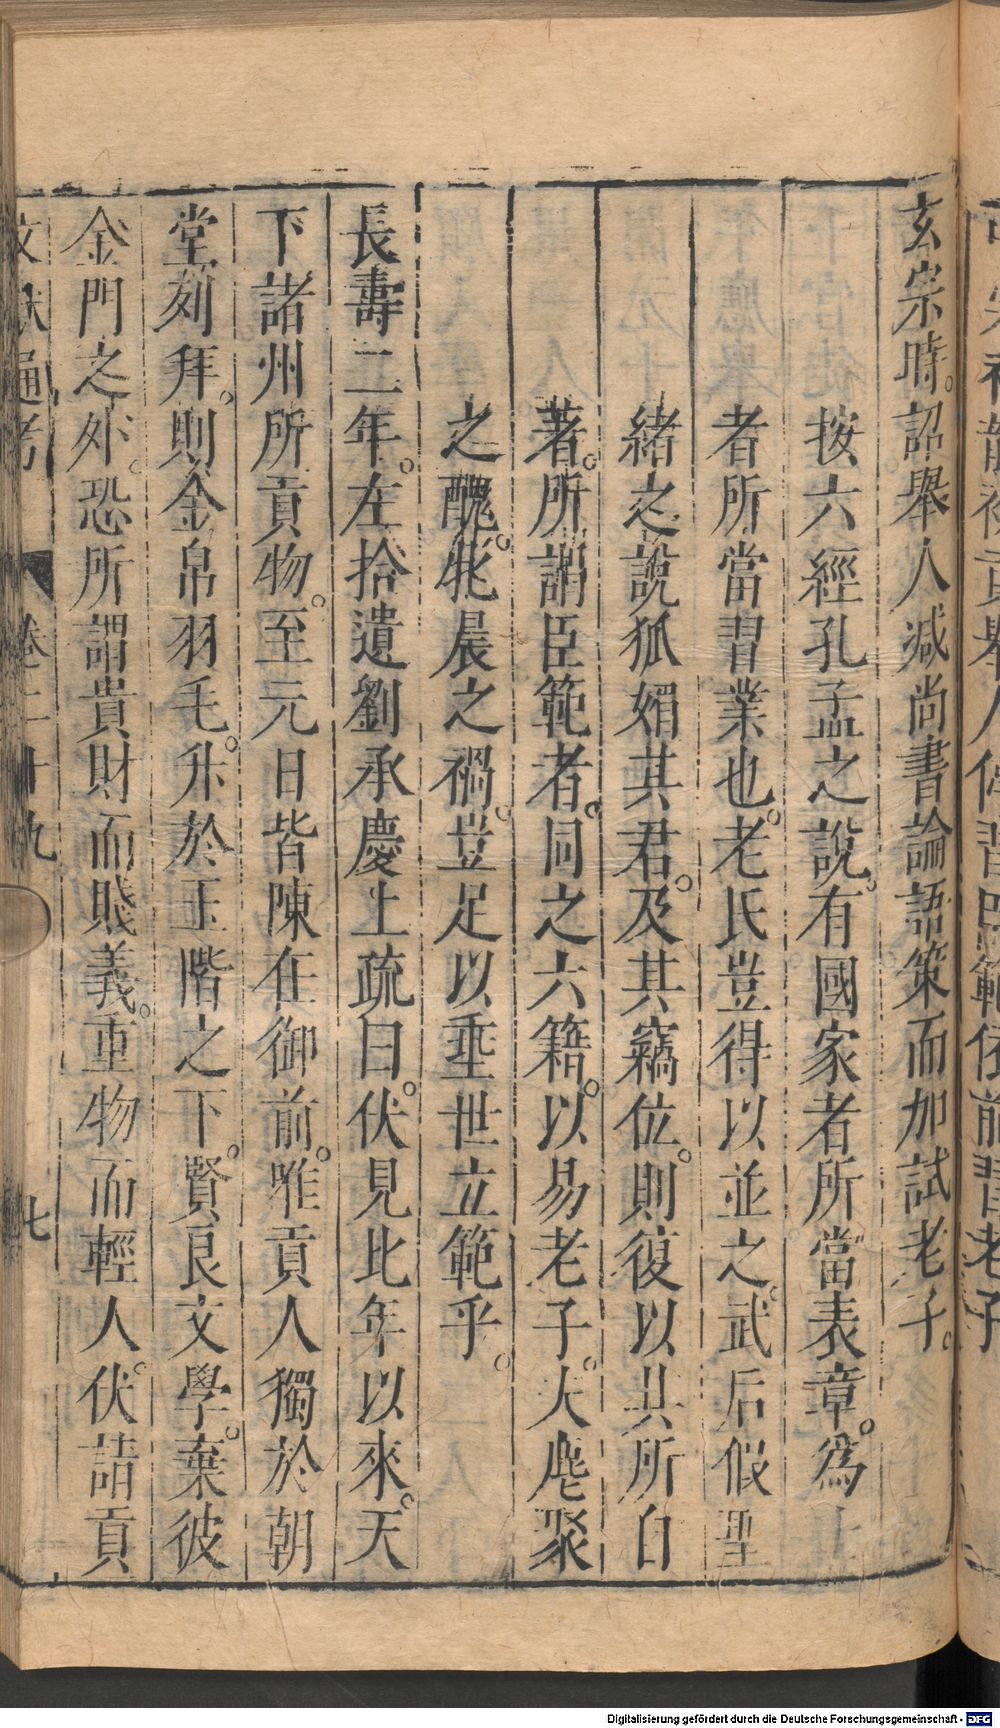 玄宗時。詔舉人減尚書論語策而加試老子。
按六經孔孟之說。有國家者所當表章。爲士
者所當習業也。老氏豈得以並之。武后假聖
緒之說狐媚其君。及其竊位。則復以其所自
著。所謂臣範者。同之六籍。以易老子。大麀聚
之醜。牝晨之禍。豈足以垂世立範乎。
長壽二年。左拾遺劉承慶上疏曰。伏見比年以來。天
下諸州所貢物。至元日皆陳在御前。唯貢人獨於朝
堂刻拜。則金帛羽毛。升於玉階之下。賢良文學。棄彼
金門之外。恐所謂貴財而賤義。重物而輕人。伏請貢
文獻通考 卷二十九 七
Digitalisierung gefördert durch die Deutsche Forschungsgemeinschaft - DFG